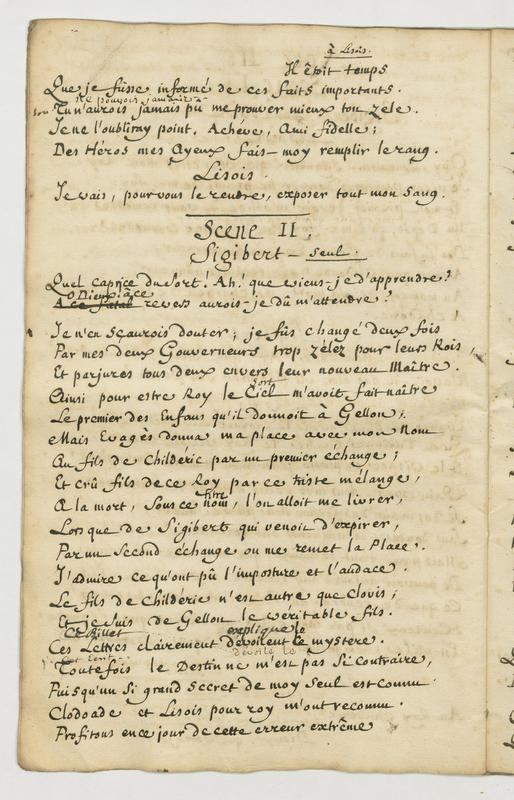 à Lisois.
Il êtoit temps
Que je fusse informé de ces faits importants.
ne pouvois jamais
Tu n'aurois jamais pû me prouver mieux ton zele.
Je ne l'oubliray point. Achéve, Ami fidelle;
Des Héros mes Ayeux fais-moy remplir le rang.
Lisois.
Je vais, pour vous le rendre, exposer tout mon sang.
Scene II.
Sigibert - seul.
Quel caprice du sort! Ah! que viens-je d'apprendre?
O Dieux, à ce
A ce fatal revers aurois-je dû m'attendre?
Je n'en sçaurois douter; je fûs changé deux fois
Par mes deux Gouverneurs trop zélez pour leurs Rois,
Et parjures tous deux envers leur nouveau Maître.
sort
Ainsi pour estre Roy le Ciel m'avoit fait naître
Le premier des Enfans qu'il donnoit à Gellon;
Mais Evagès donna ma place avec mon Nom
Au fils de Childéric par un premier échange;
Et crû fils de ce Roy par ce triste mélange,
titre
A la mort, sous ce nom, l'on alloit me livrer,
Lors que de Sigibert qui venoit d'expirer,
Par un second échange on me remet la Place.
J'admire ce qu'ont pû l'imposture et l'audace.
Le fils de Childéric n'est autre que Clovis;
Et je suis de Gellon le véritable fils.
Ce Billet explique le
Ces Lettres clairement dévoilent le mystere.
dévoile le
Toutefois le Destin ne m'est pas si contraire,
Puisqu'un si grand secret de moy seul est connu.
Clodoade et Lisois pour roy m'ont reconnu.
Profitons en ce jour de cette erreur extrême